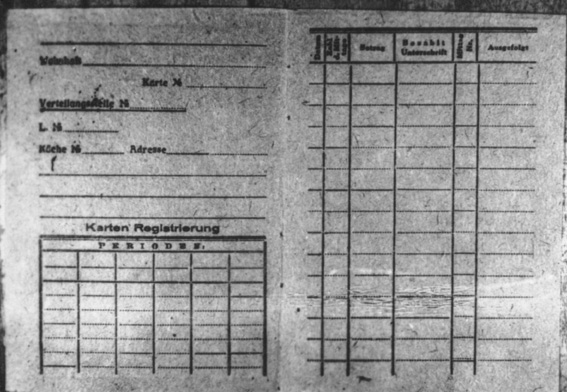 Wohnhaft
Karte №
Verteilungsstelle №
L. №
Küche № Adresse
Karten Registrierung
PERIODEN.
Datum
Betrag
Bezahlt
Unterschrift
№.
Ausgefolgt